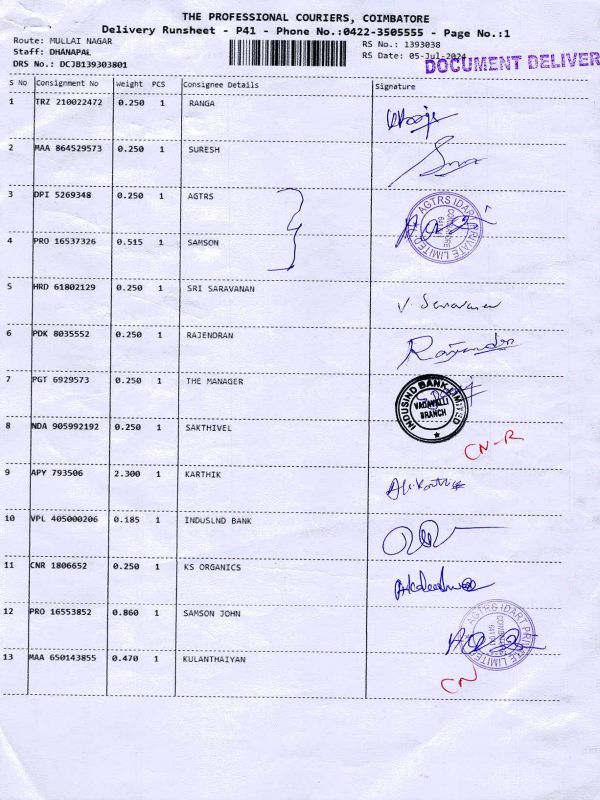 THE PROFESSIONAL COURIERS, COIMBATORE
Delivery Runsheet - P41 - Phone No.:0422-3505555 - Page No.:1
Route: MULLAI NAGAR
Staff: DHANAPAL
DRS No.: DCJB139303801
RS No.: 1393038
RS Date: 05-Jul-2024
DOCUMENT DELIVER
S No Consignment No Weight PCS Consignee Details Signature
1 TRZ 210022472 0.250 1 RANGA
2 MAA 864529573 0.250 1 SURESH
3 DPI 5269348 0.250 1 AGTRS
AGTRS IDART PRIVATE LIMITED
4 PRO 16537326 0.515 1 SAMSON
5 HRD 61802129 0.250 1 SRI SARAVANAN V. Saravanan
6 PDK 8035552 0.250 1 RAJENDRAN Rajendran
7 PGT 6929573 0.250 1 THE MANAGER
INDUSIND BANK LIMITED
VADAVALLI
BRANCH
8 NDA 905992192 0.250 1 SAKTHIVEL CN-R
9 APY 793506 2.300 1 KARTHIK
10 VPL 405000206 0.185 1 INDUSLND BANK
11 CNR 1806652 0.250 1 KS ORGANICS
12 PRO 16553852 0.860 1 SAMSON JOHN
AGTRS IDART PRIVATE LIMITED
13 MAA 650143855 0.470 1 KULANTHAIYAN CN